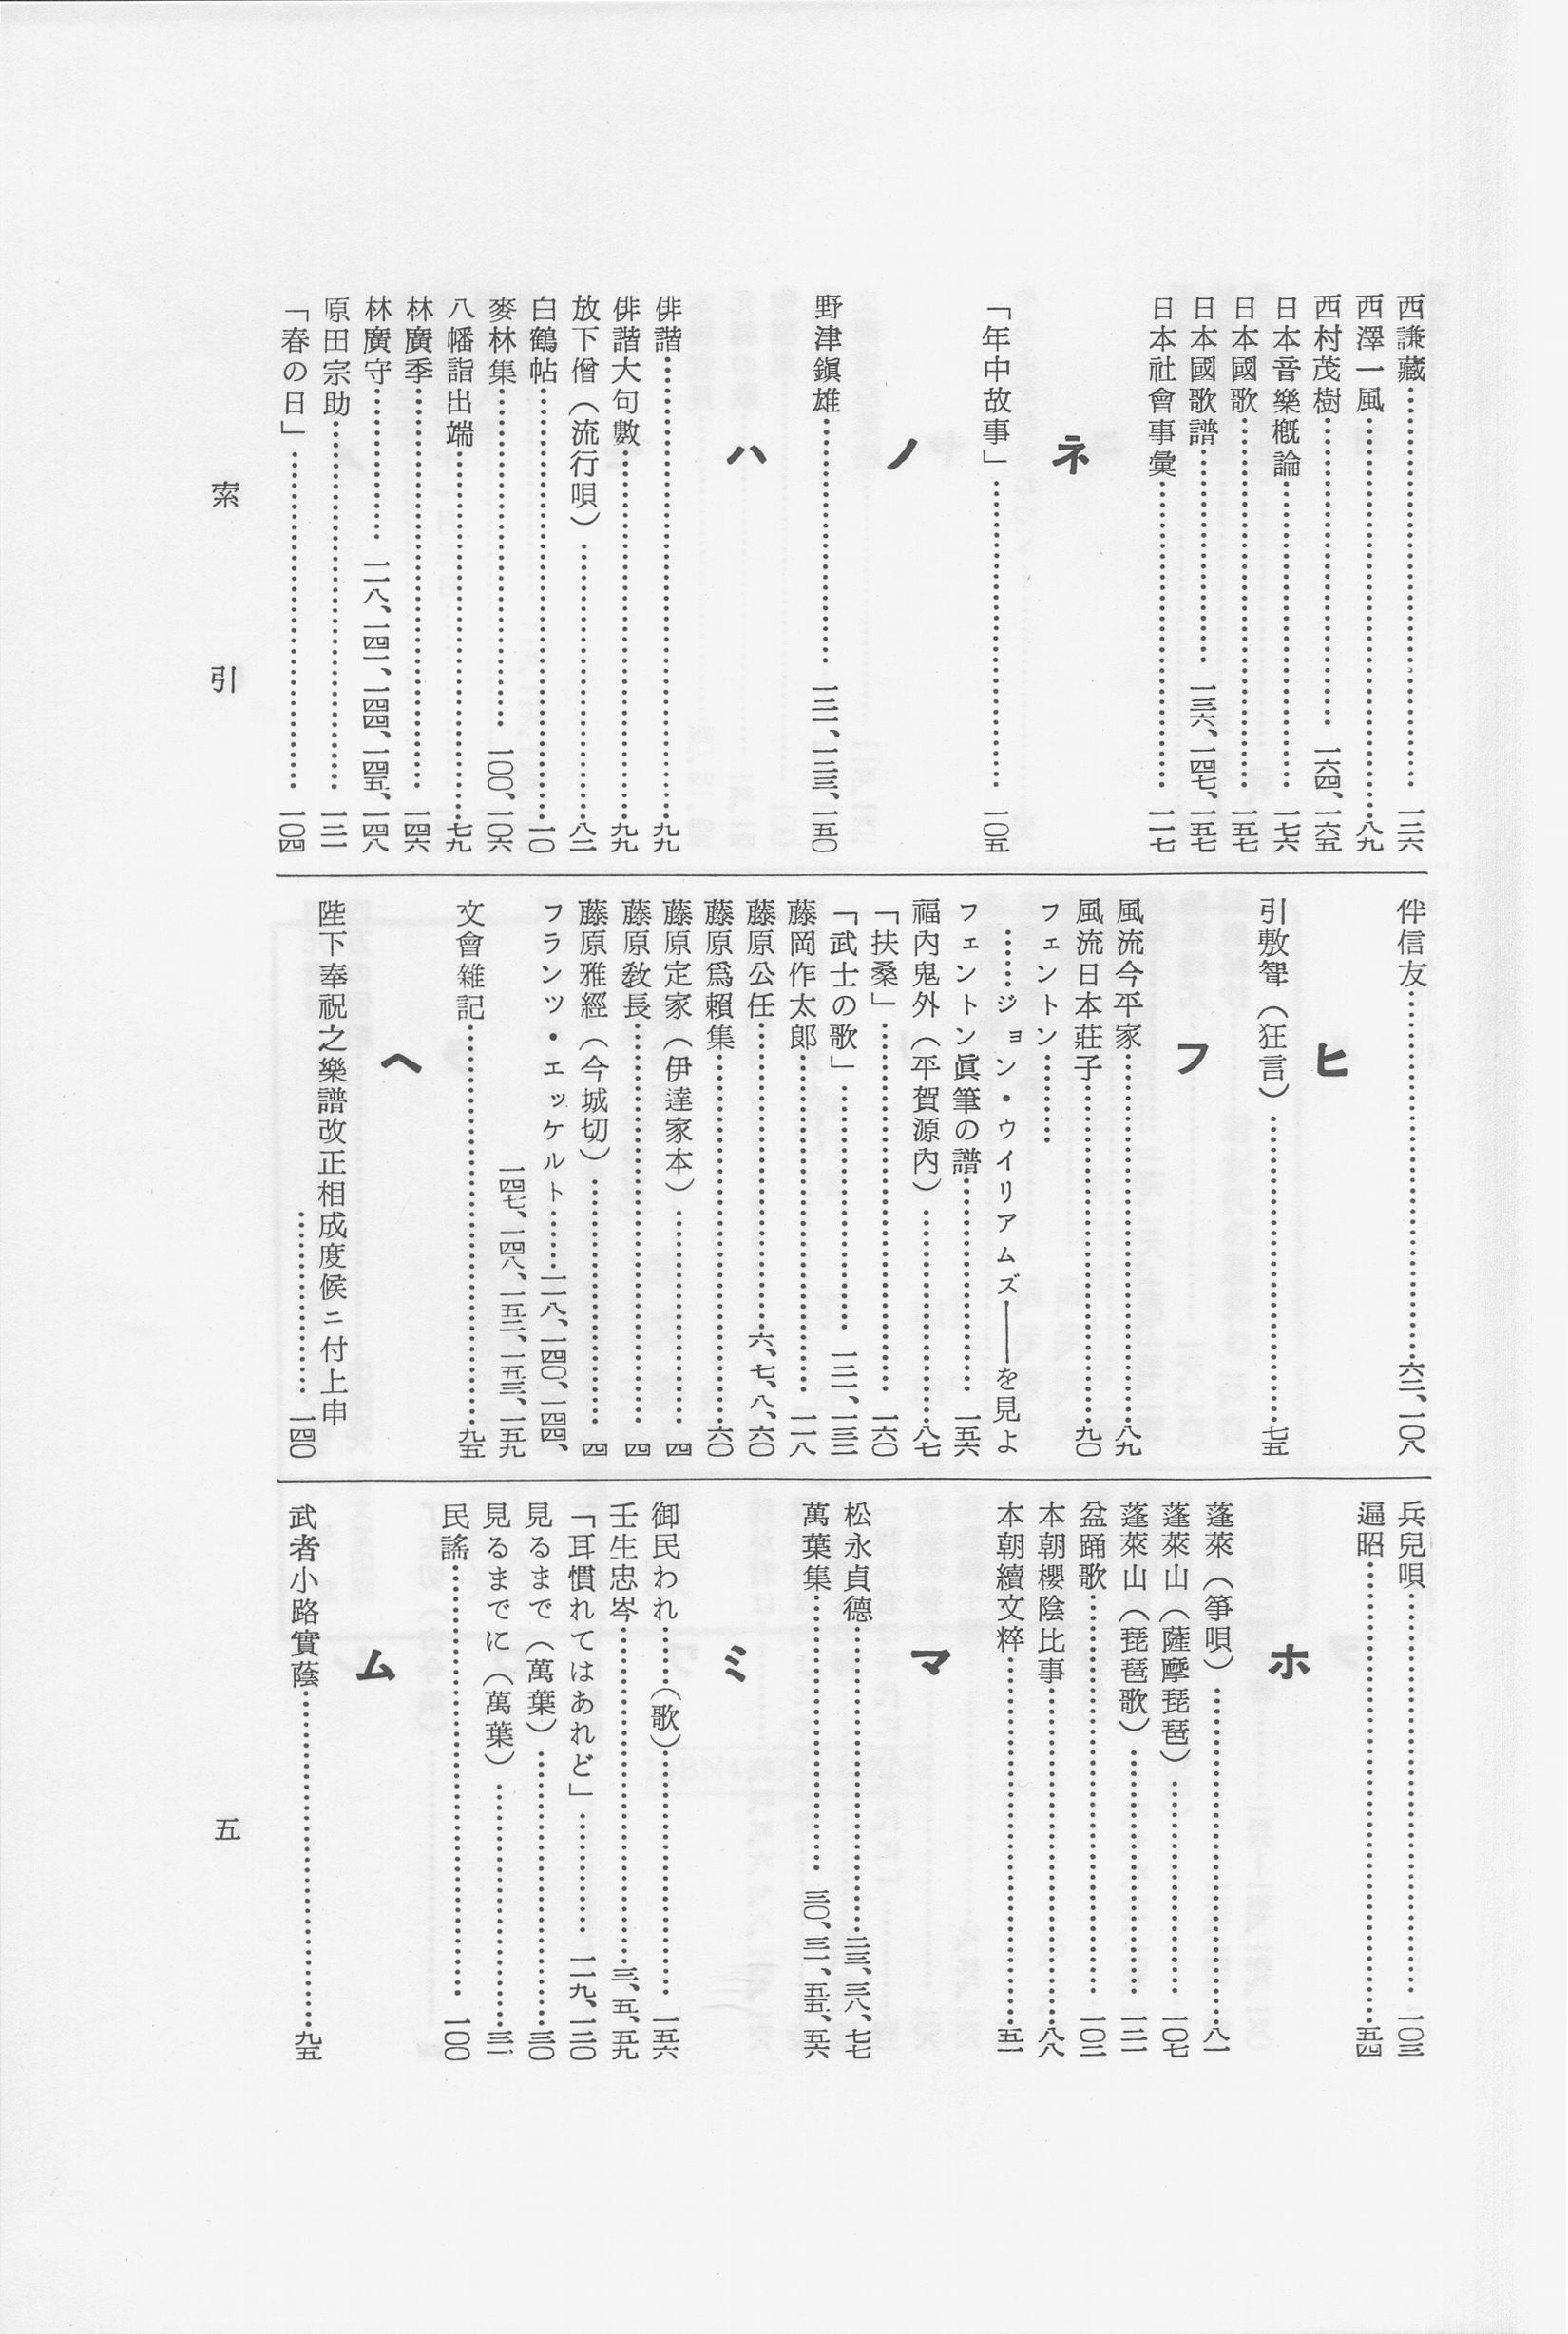 西謙藏……一三六
西澤一風……八九
西村茂樹……一六四、一六五
日本音樂槪論……一七六
日本國歌……一五七
日本國歌譜……一三六、一四七、一五七
日本社會事彙……一一七
ネ
「年中故事」……一〇五
ノ
野津鎭雄……一二一、一二三、一五〇
ハ
俳諧……九九
俳諧大句數……九九
放下僧（流行唄）……八二
白鶴帖……一〇
麥林集……一〇〇、一〇六
八幡詣出端……七九
林廣季……一四六
林廣守……一一八、一四一、一四四、一四五、一四八
原田宗助……一二一
「春の日」……一〇四
伴信友……六二、一〇八
ヒ
引敷聟（狂言）……七五
フ
風流今平家……八九
風流日本莊子……九〇
フェントン……
……ジョン・ウイリアムズ――を見よ
フェントン眞筆の譜……一五六
福內鬼外（平賀源內）……八七
「扶桑」……一六〇
「武士の歌」……一二一、一三二
藤岡作太郎……一一八
藤原公任……六、七、八、六〇
藤原爲賴集……六〇
藤原定家（伊達家本）……四
藤原敎長……四
藤原雅經（今城切）……四
フランツ・エッケルト……一一八、一四〇、一四四、
一四七、一四八、一五二、一五三、一五九
文會雜記……九五
ヘ
陛下奉祝之樂譜改正相成度候ニ付上申
……一四〇
兵兒唄……一〇三
遍昭……五四
ホ
蓬萊（箏唄）……八一
蓬萊山（薩摩琵琶）……一〇七
蓬萊山（琵琶歌）……一二一
盆踊歌……一〇二
本朝櫻陰比事……八八
本朝續文粹……五一
マ
松永貞德……二三、三八、七七
萬葉集……三〇、三一、五五、五六
ミ
御民われ……（歌）……一五六
壬生忠岑……三、五、五九
「耳慣れてはあれど」……一一九、一二〇
見るまで（萬葉）……三〇
見るまでに（萬葉）……三一
民謠……一〇〇
ム
武者小路實蔭……九五
索引
五